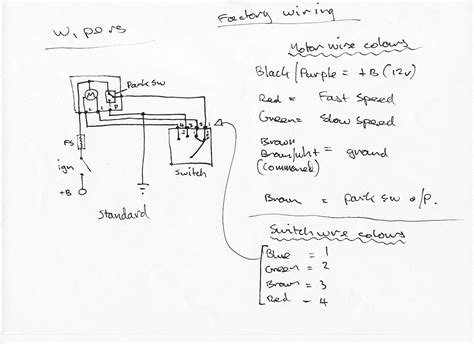 Factory wiring
Wipers
Motor wire colours
Black/Purple = +B (12v)
Red = Fast Speed
Green = Slow speed
Brown
Brown/wht = ground
(Commoned)
Brown = park sw o/p.
Park SW
M
F5
ign
+B
Switch
Standard
Switch wire colours
Blue = 1
Green = 2
Brown = 3
Red - 4